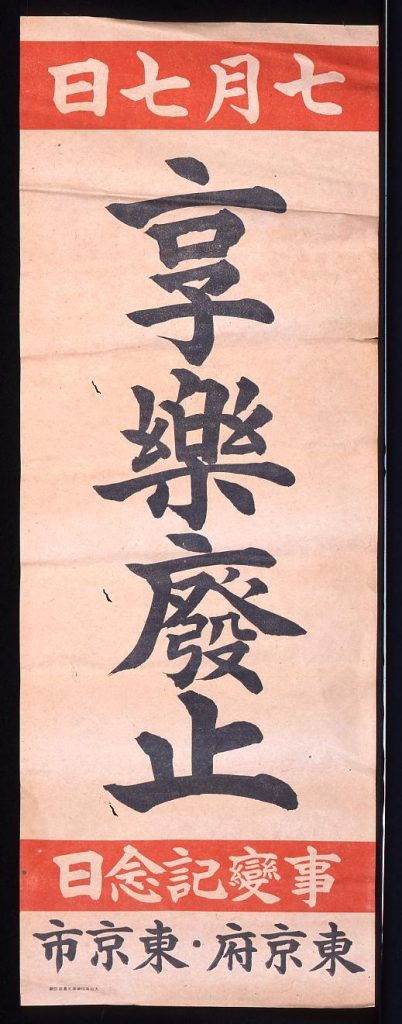 七月七日
享樂廢止
事變記念日
東京府・東京市